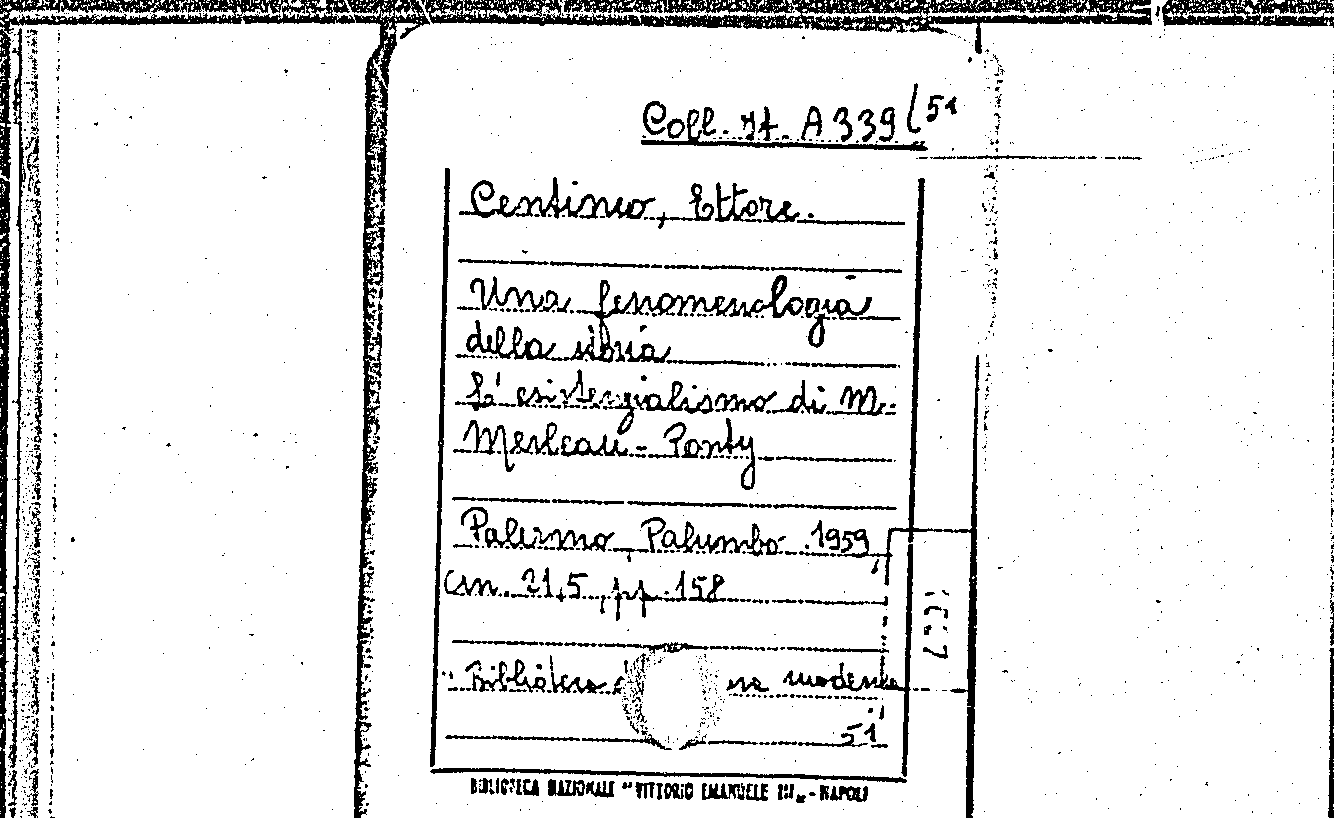 Coll. It. A 339 (51
Centineo, Ettore.
Una fenomenologia
della storia
L'esistenzialismo di M.
Merleau-Ponty
Palermo, Palumbo. 1959,
cm. 21,5, pp. 158
Biblioteca moderna
51
BIBLIOTECA NAZIONALE "VITTORIO EMANUELE III„ - NAPOLI